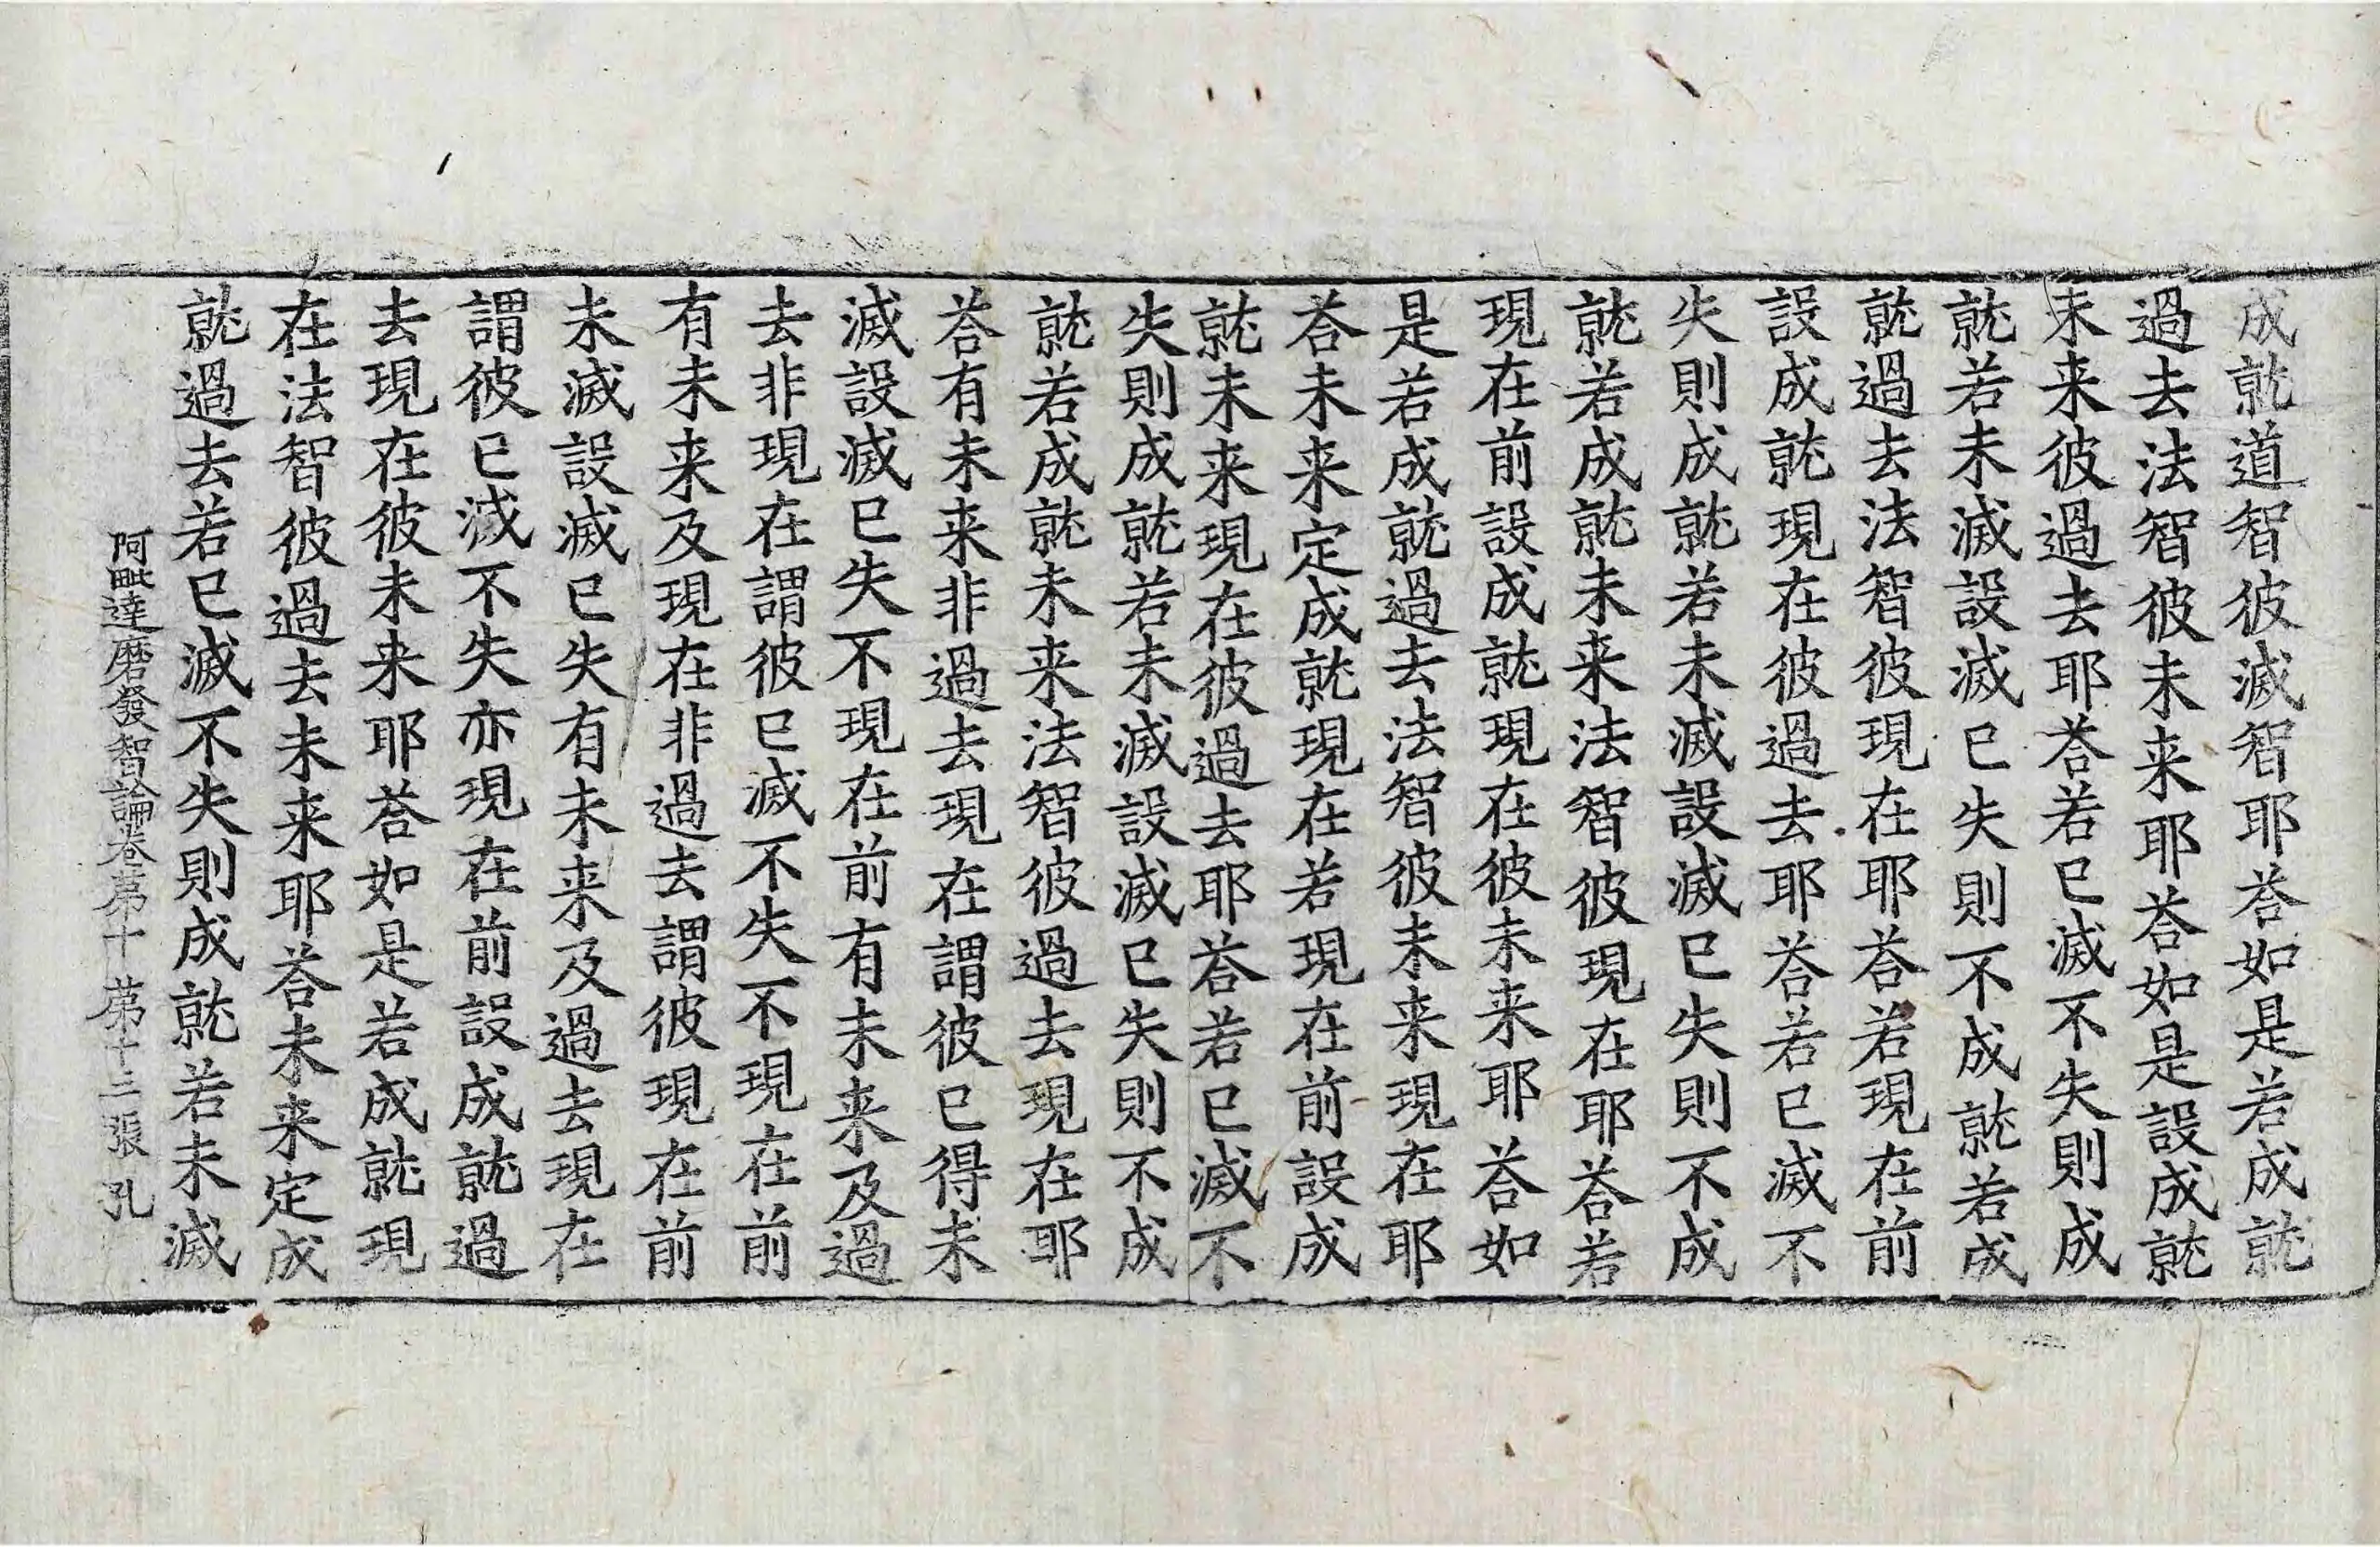 成就道智彼滅智耶荅如是若成就
過去法智彼未来耶荅如是設成就
未来彼過去耶荅若已滅不失則成
就若未滅設滅已失則不成就若成
就過去法智彼現在耶荅若現在前
設成就現在彼過去耶荅若已滅不
失則成就若未滅設滅已失則不成
就若成就未来法智彼現在耶荅若
現在前設成就現在彼未来耶荅如
是若成就過去法智彼未来現在耶
荅未来定成就現在若現在前設成
就未来現在彼過去耶荅若已滅不
失則成就若未滅設滅已失則不成
就若成就未来法智彼過去現在耶
荅有未来非過去現在謂彼已得未
滅設滅已失不現在前有未来及過
去非現在謂彼已滅不失不現在前
有未来及現在非過去謂彼現在前
未滅設滅已失有未来及過去現在
謂彼已滅不失亦現在前設成就過
去現在彼未来耶荅如是若成就現
在法智彼過去未来耶荅未来定成
就過去若已滅不失則成就若未滅
阿毗達磨發智論卷第十 第十三張 孔